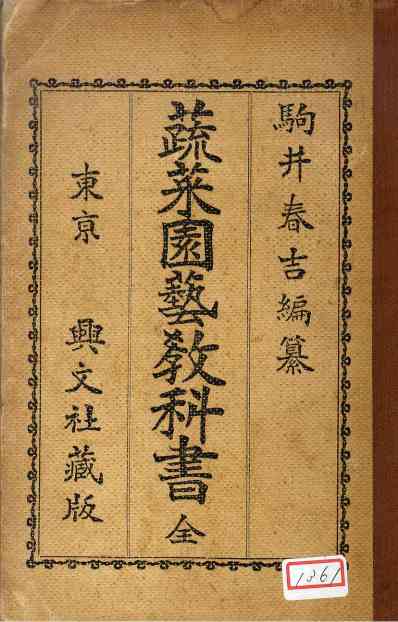 駒井春吉編纂
蔬菜園藝教科書 全
東京 興文社藏版
1361